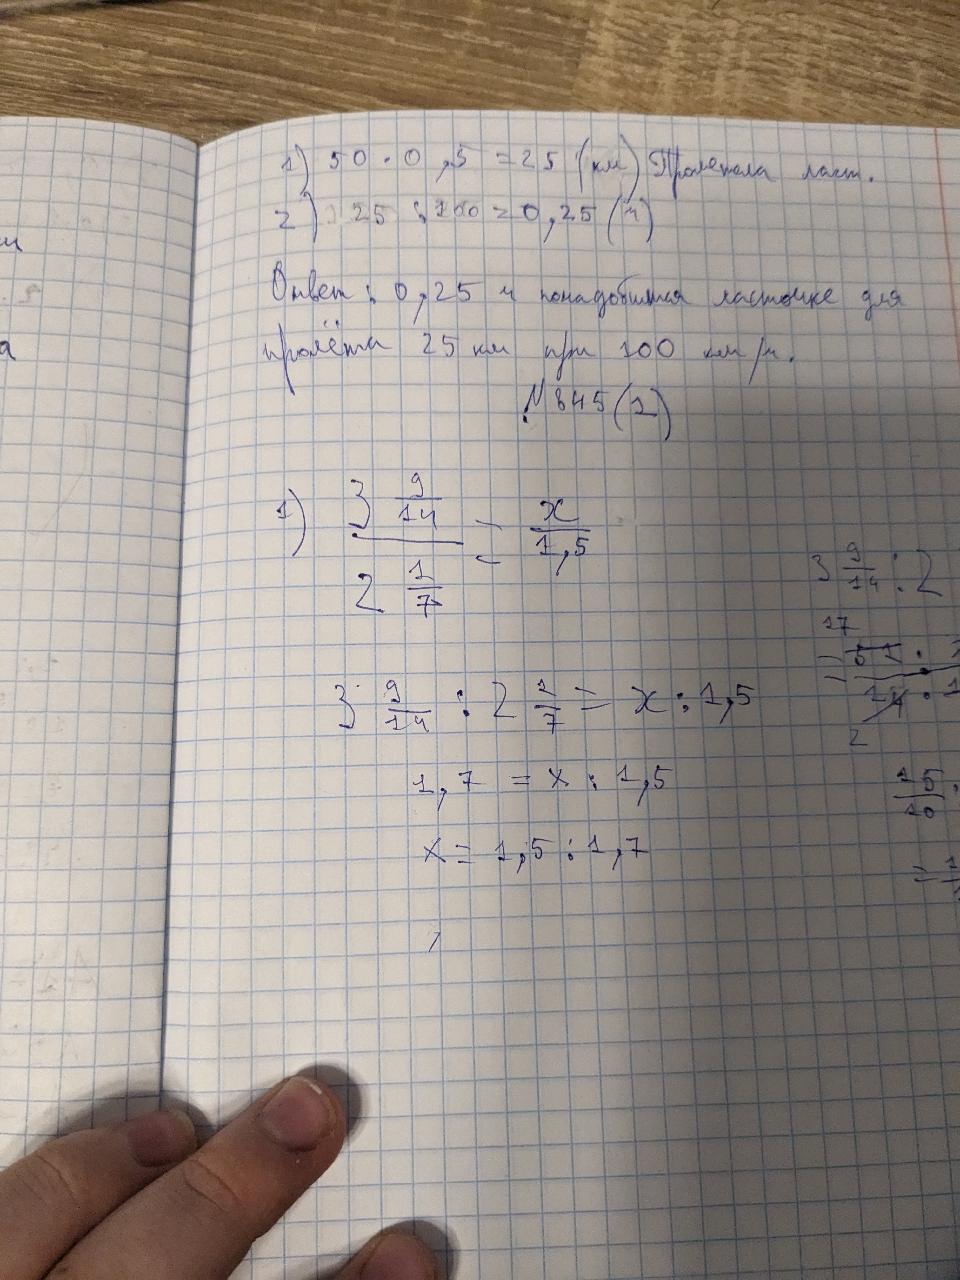 1) 50 · 0,5 = 25 (км) Пролетела ласт.
2) 25 : 100 = 0,25 (ч)
Ответ: 0,25 ч понадобится ласточке для
пролёта 25 км при 100 км/ч.
№845(1)
1) 3 9/14 / 2 1/7 = x / 1,5
3 9/14 : 2 1/7 = x : 1,5
1,7 = x : 1,5
x = 1,5 : 1,7
3 9/14 : 2
17
= 51 ·
14 · 1
2
15/10